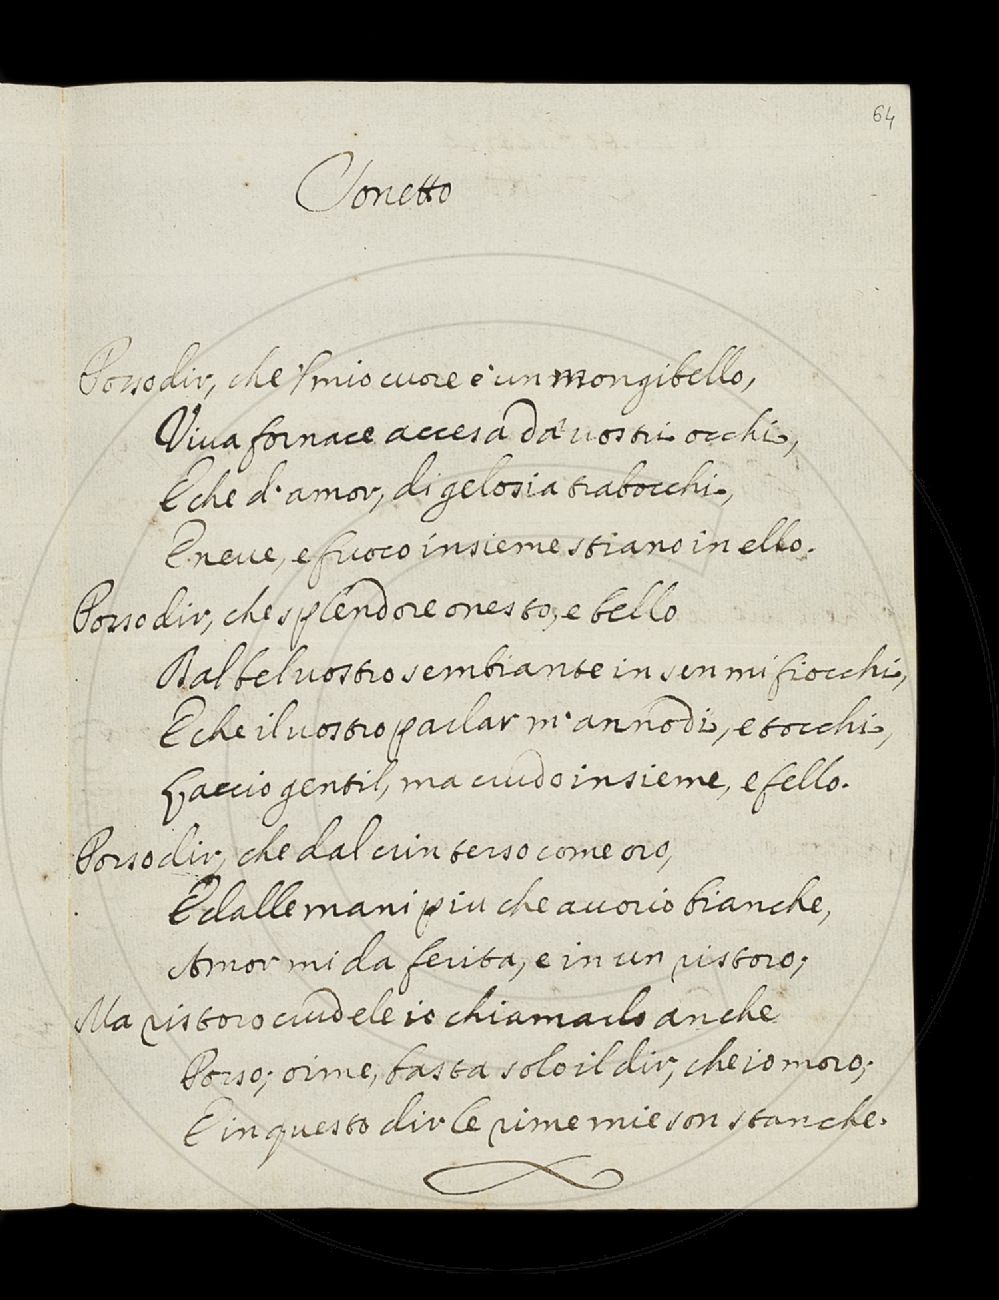 64
Sonetto
Posso dir, che 'l mio cuore è un mongibello,
Viva fornace accesa da' vostri occhi,
E che d'amor, di gelosia trabocchi,
E neve, e fuoco insieme stiano in ello.
Posso dir, che splendore onesto, e bello
Dal bel vostro sembiante in sen mi fiocchi,
E che il vostro parlar m'annodi, e tocchi,
Laccio gentil, ma crudo insieme, e fello.
Posso dir, che dal crin terso come oro,
E dalle mani piu che avorio bianche,
Amor mi da ferita, e in un ristoro;
Ma ristoro crudele io chiamarlo anche
Posso; oime, basta solo il dir, che io moro;
E in questo dir le rime mie son stanche.